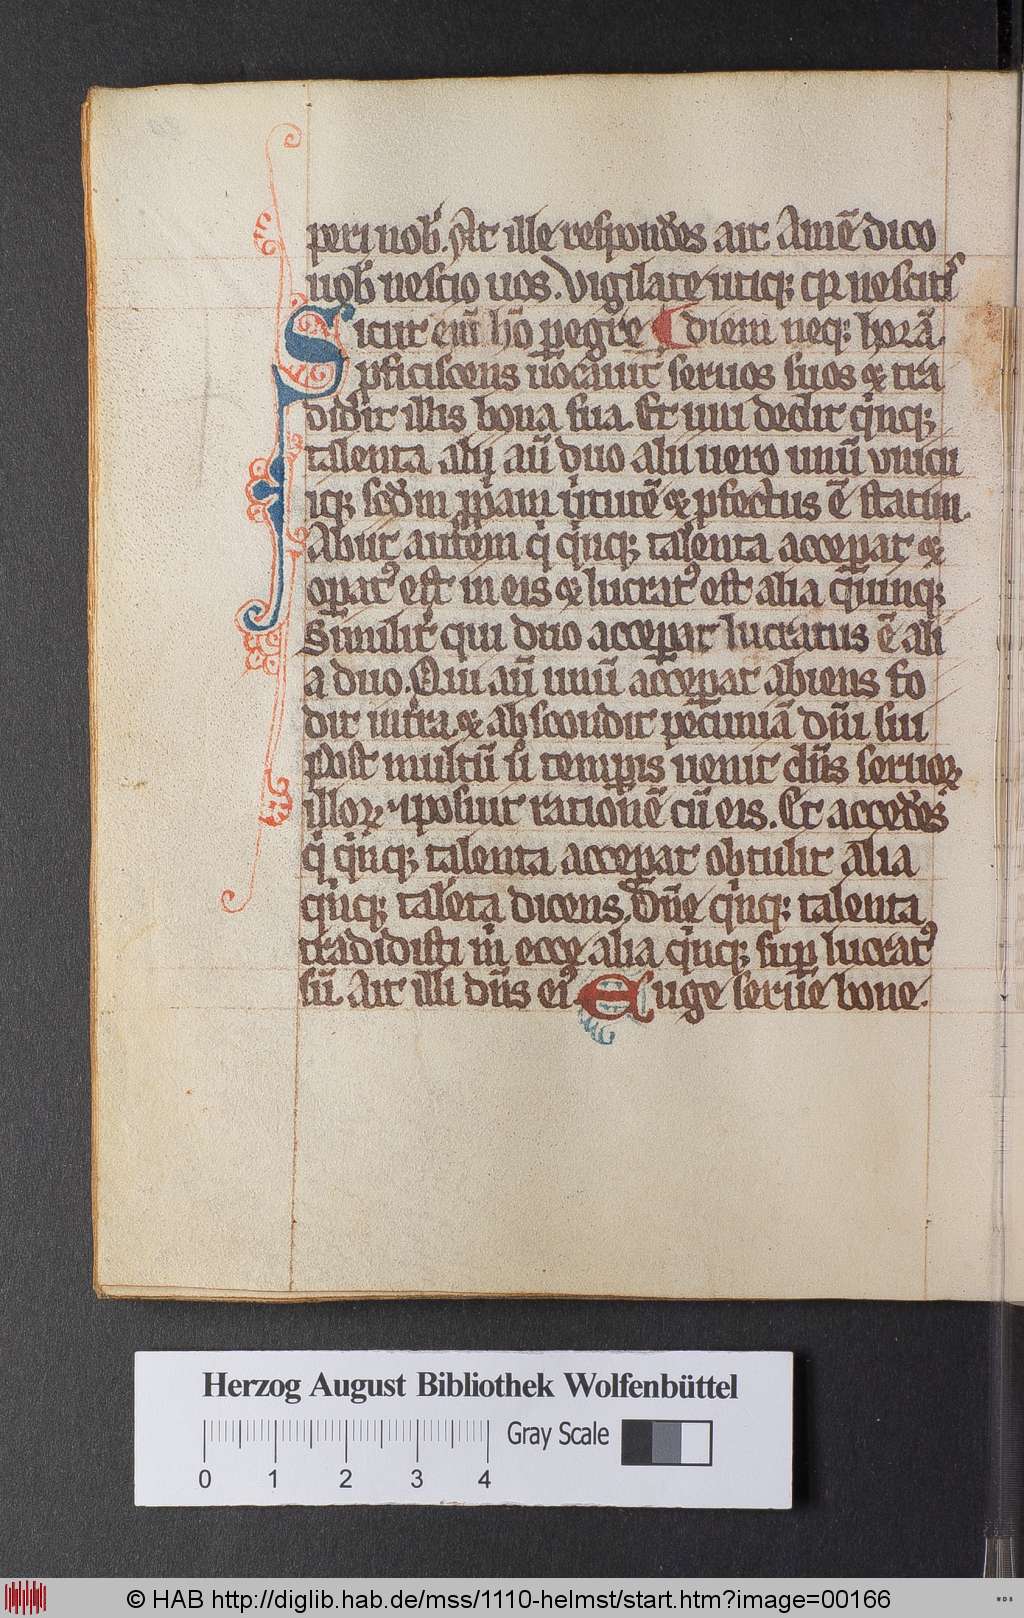 peri nob̄. At ille respond̄es ait. Amē dico
uob̄ nescio uos. Vigilate utiq; q̄ nescitꝭ
Sicut eni᷎ hō ꝑegre ¶ diem neq; horā.
ꝓficiscens uocauit seruos suos ⁊ tra
didit illis bona sua. Et uni dedit qͥnq;
talenta alij aū duo alii uero unū unicu
iq; scd̄m ꝓpͥam uͥtutē ⁊ ꝓfectus ē statim.
Abiit autem qͥ qͥnq; talenta acceꝑat ⁊
oꝑatꝰ est in eis ⁊ lucratꝰ est alia quinq;
Similit̓ qui duo acceꝑat lucratus ē ali
a duo. Qui aū unū acceꝑat abiens fo
dit in t̓ra ⁊ abscondit pecuniā dn̄i sui
Post multū u̓ temꝑis uenit dn̄s seruoꝝ
illoꝝ ⁊ posuit rationē cū eis. Et acced̄es
qͥ qͥnq; talenta acceꝑat obtulit alia
qͥnq; talēta dicens. Dn̄e qͥnq; talenta
tradidisti m̄ ecce alia qͥnq; suꝑ lucratꝰ
sū. Ait illi dn̄s eiꝰ. Euge serue bone.
Herzog August Bibliothek Wolfenbüttel
0 1 2 3 4 Gray Scale
© HAB http://diglib.hab.de/mss/1110-helmst/start.htm?image=00166